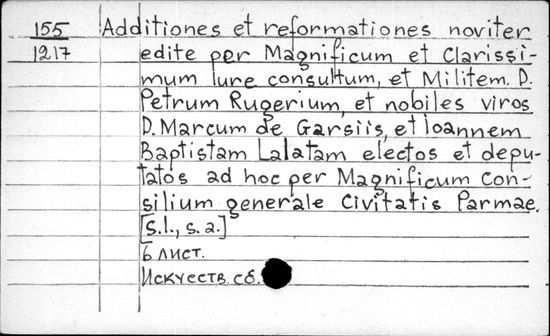 155 Additiones et reformationes noviter
1217 edite per Magnificum et Clarissi-
mum Iure consultum, et Militem D.
Petrum Rugerium, et nobiles viros
D. Marcum de Garsiis, et Ioannem
Baptistam Lalatam electos et depu-
tatos ad hoc per Magnificum Con-
silium generale Civitatis Parmae.
[S.l., s.a.]
6 лист.
Искусств. сб.